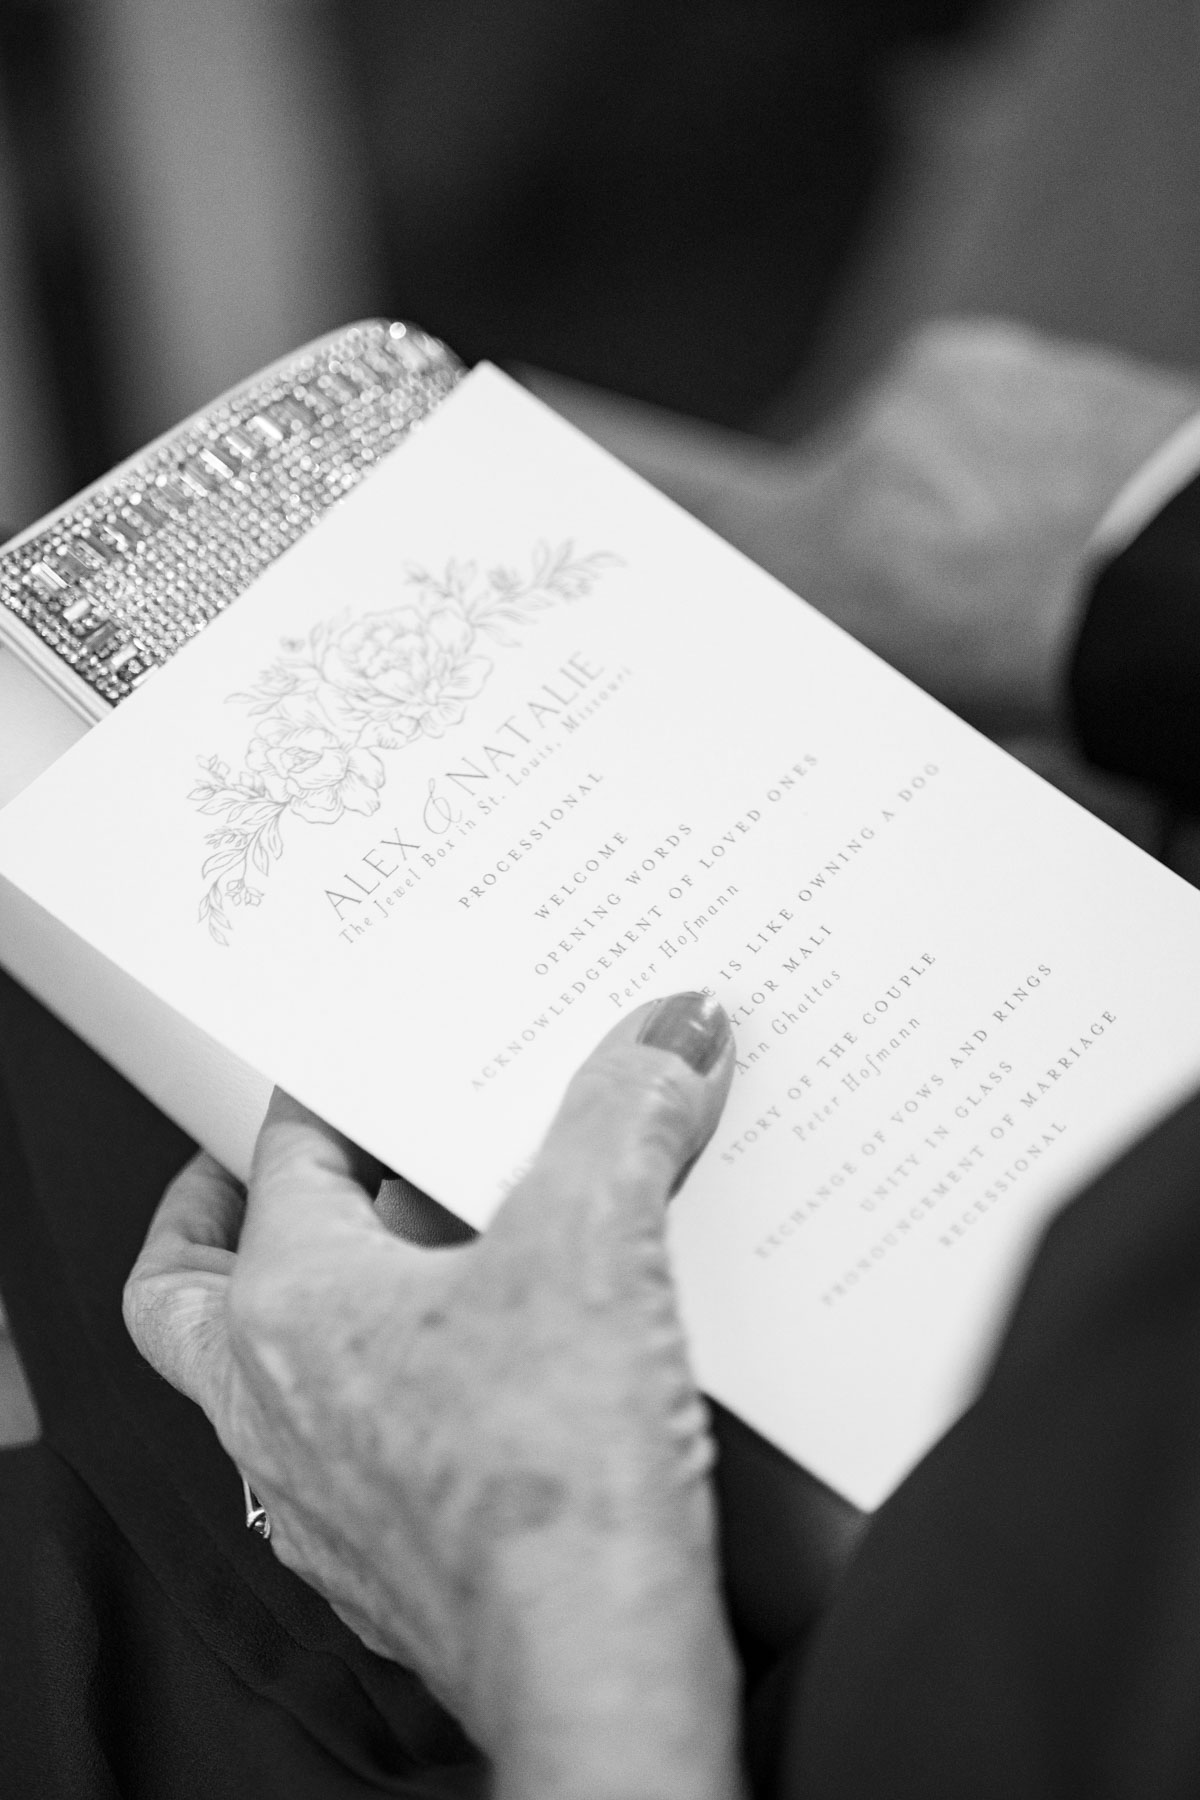 ALEX & NATALIE
The Jewel Box in St. Louis, Missouri
PROCESSIONAL
WELCOME
OPENING WORDS
ACKNOWLEDGEMENT OF LOVED ONES
Peter Hofmann
IS LIKE OWNING A DOG
MALI
Ann Ghattas
STORY OF THE COUPLE
Peter Hofmann
EXCHANGE OF VOWS AND RINGS
UNITY IN GLASS
PRONOUNCEMENT OF MARRIAGE
RECESSIONAL